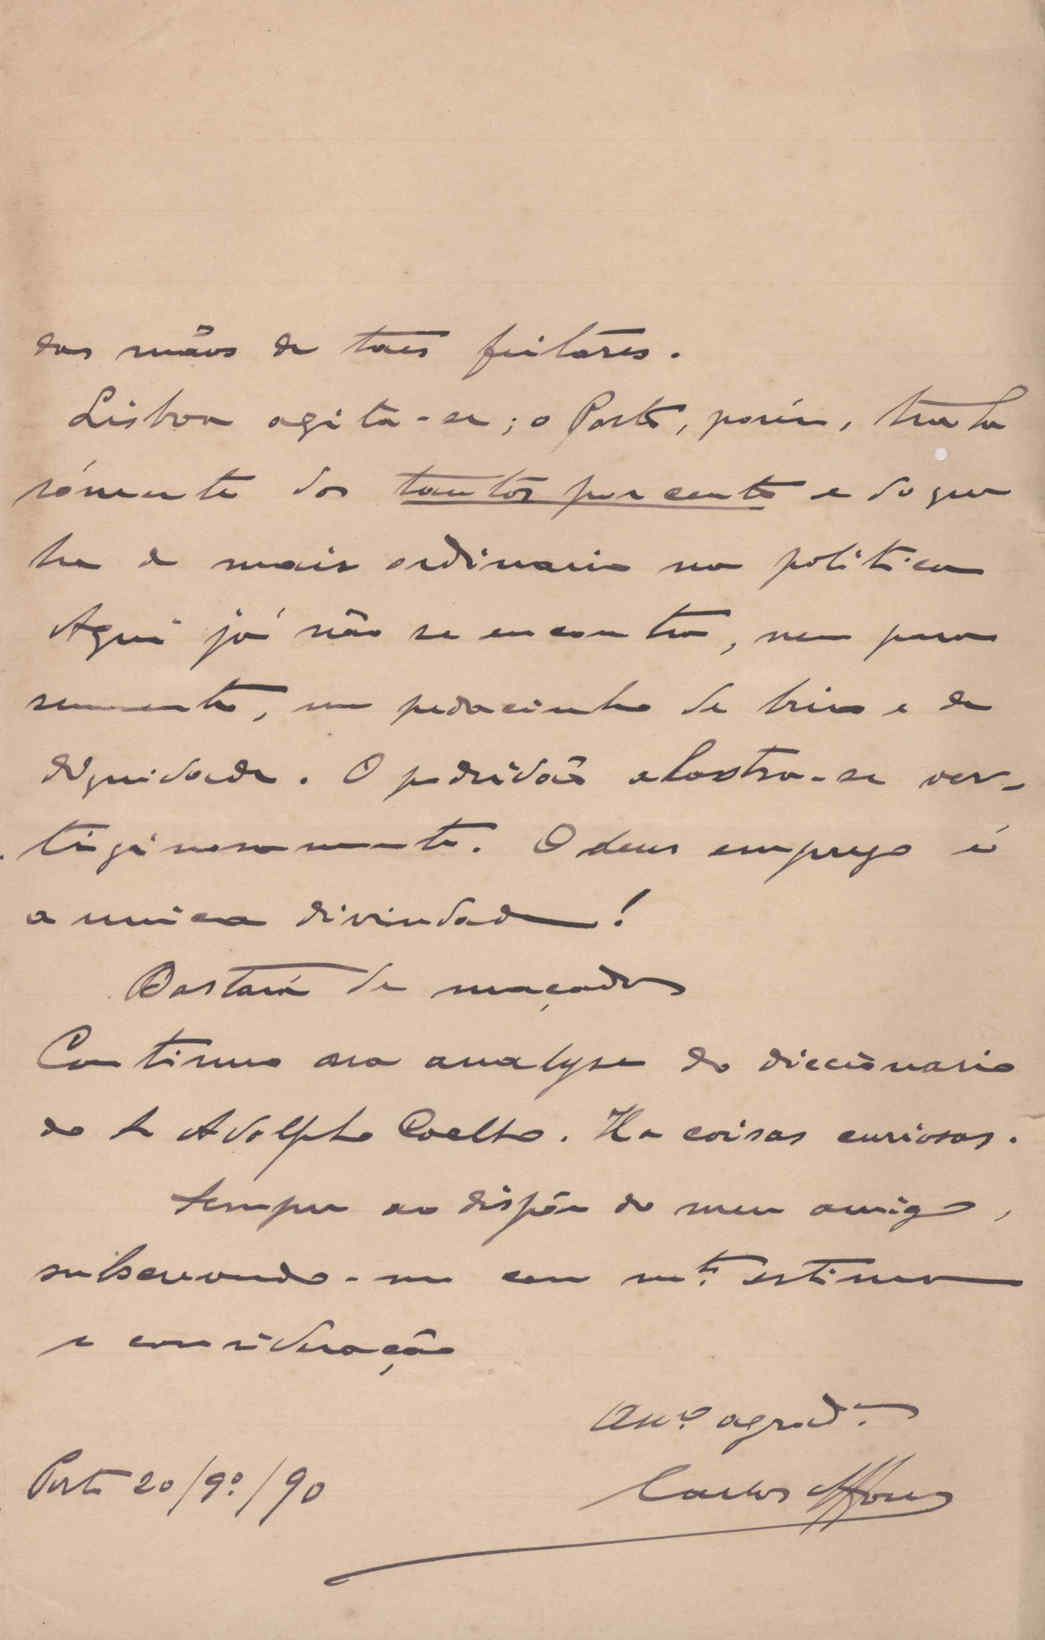 das mãos de taes feitores.
Lisboa agita-se; o Porto, porém, trata
sómente dos tantos por cento e do que
ha de mais ordinario na politica
Aqui já não se encontra, nem para
semente, um pedacinho de brio e de
dignidade. A podridão alastra-se ver-
tiginosamente. O deus emprego é
a unica divindade!
Bastará de maçada
Continuo ora analyse do diccionario
do sr Adolpho Coelho. Ha coisas curiosas.
Sempre ao dispôr do meu amigo,
subscrevendo-me com mta. estima
e consideração
Amo. agrad.
Porto 20/9º/90
Carlos Affonso